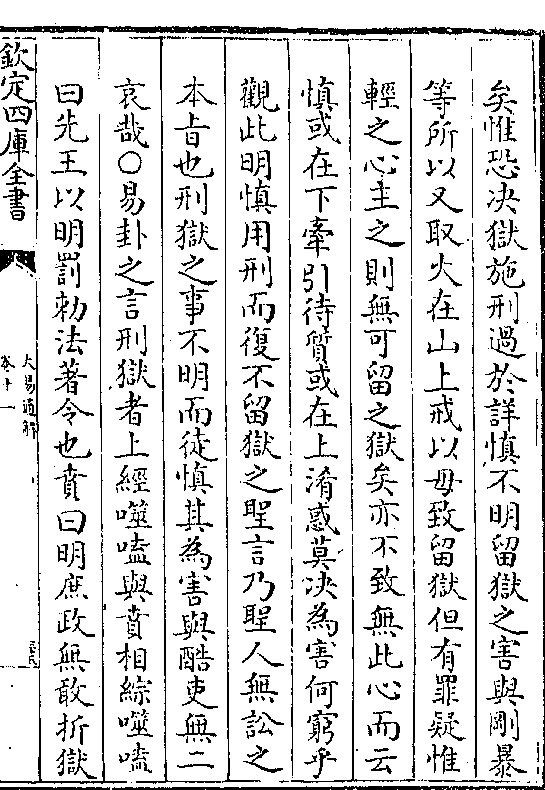 矣惟恐决獄施刑過於詳慎不明留獄之害與剛暴
等所以又取火在山上戒以毋致留獄但有罪疑惟
輕之心主之則無可留之獄矣亦不致無此心而云
慎或在下牽引待質或在上淆惑莫决為害何窮乎
觀此明慎用刑而復不留獄之聖言乃聖人無訟之
本旨也刑獄之事不明而徒慎其為害與酷吏無二
哀哉○易卦之言刑獄者上經噬嗑與賁相綜噬嗑
曰先王以明罰勅法著令也賁曰明庶政無敢折獄
欽定四庫全書
大易通解
卷十一